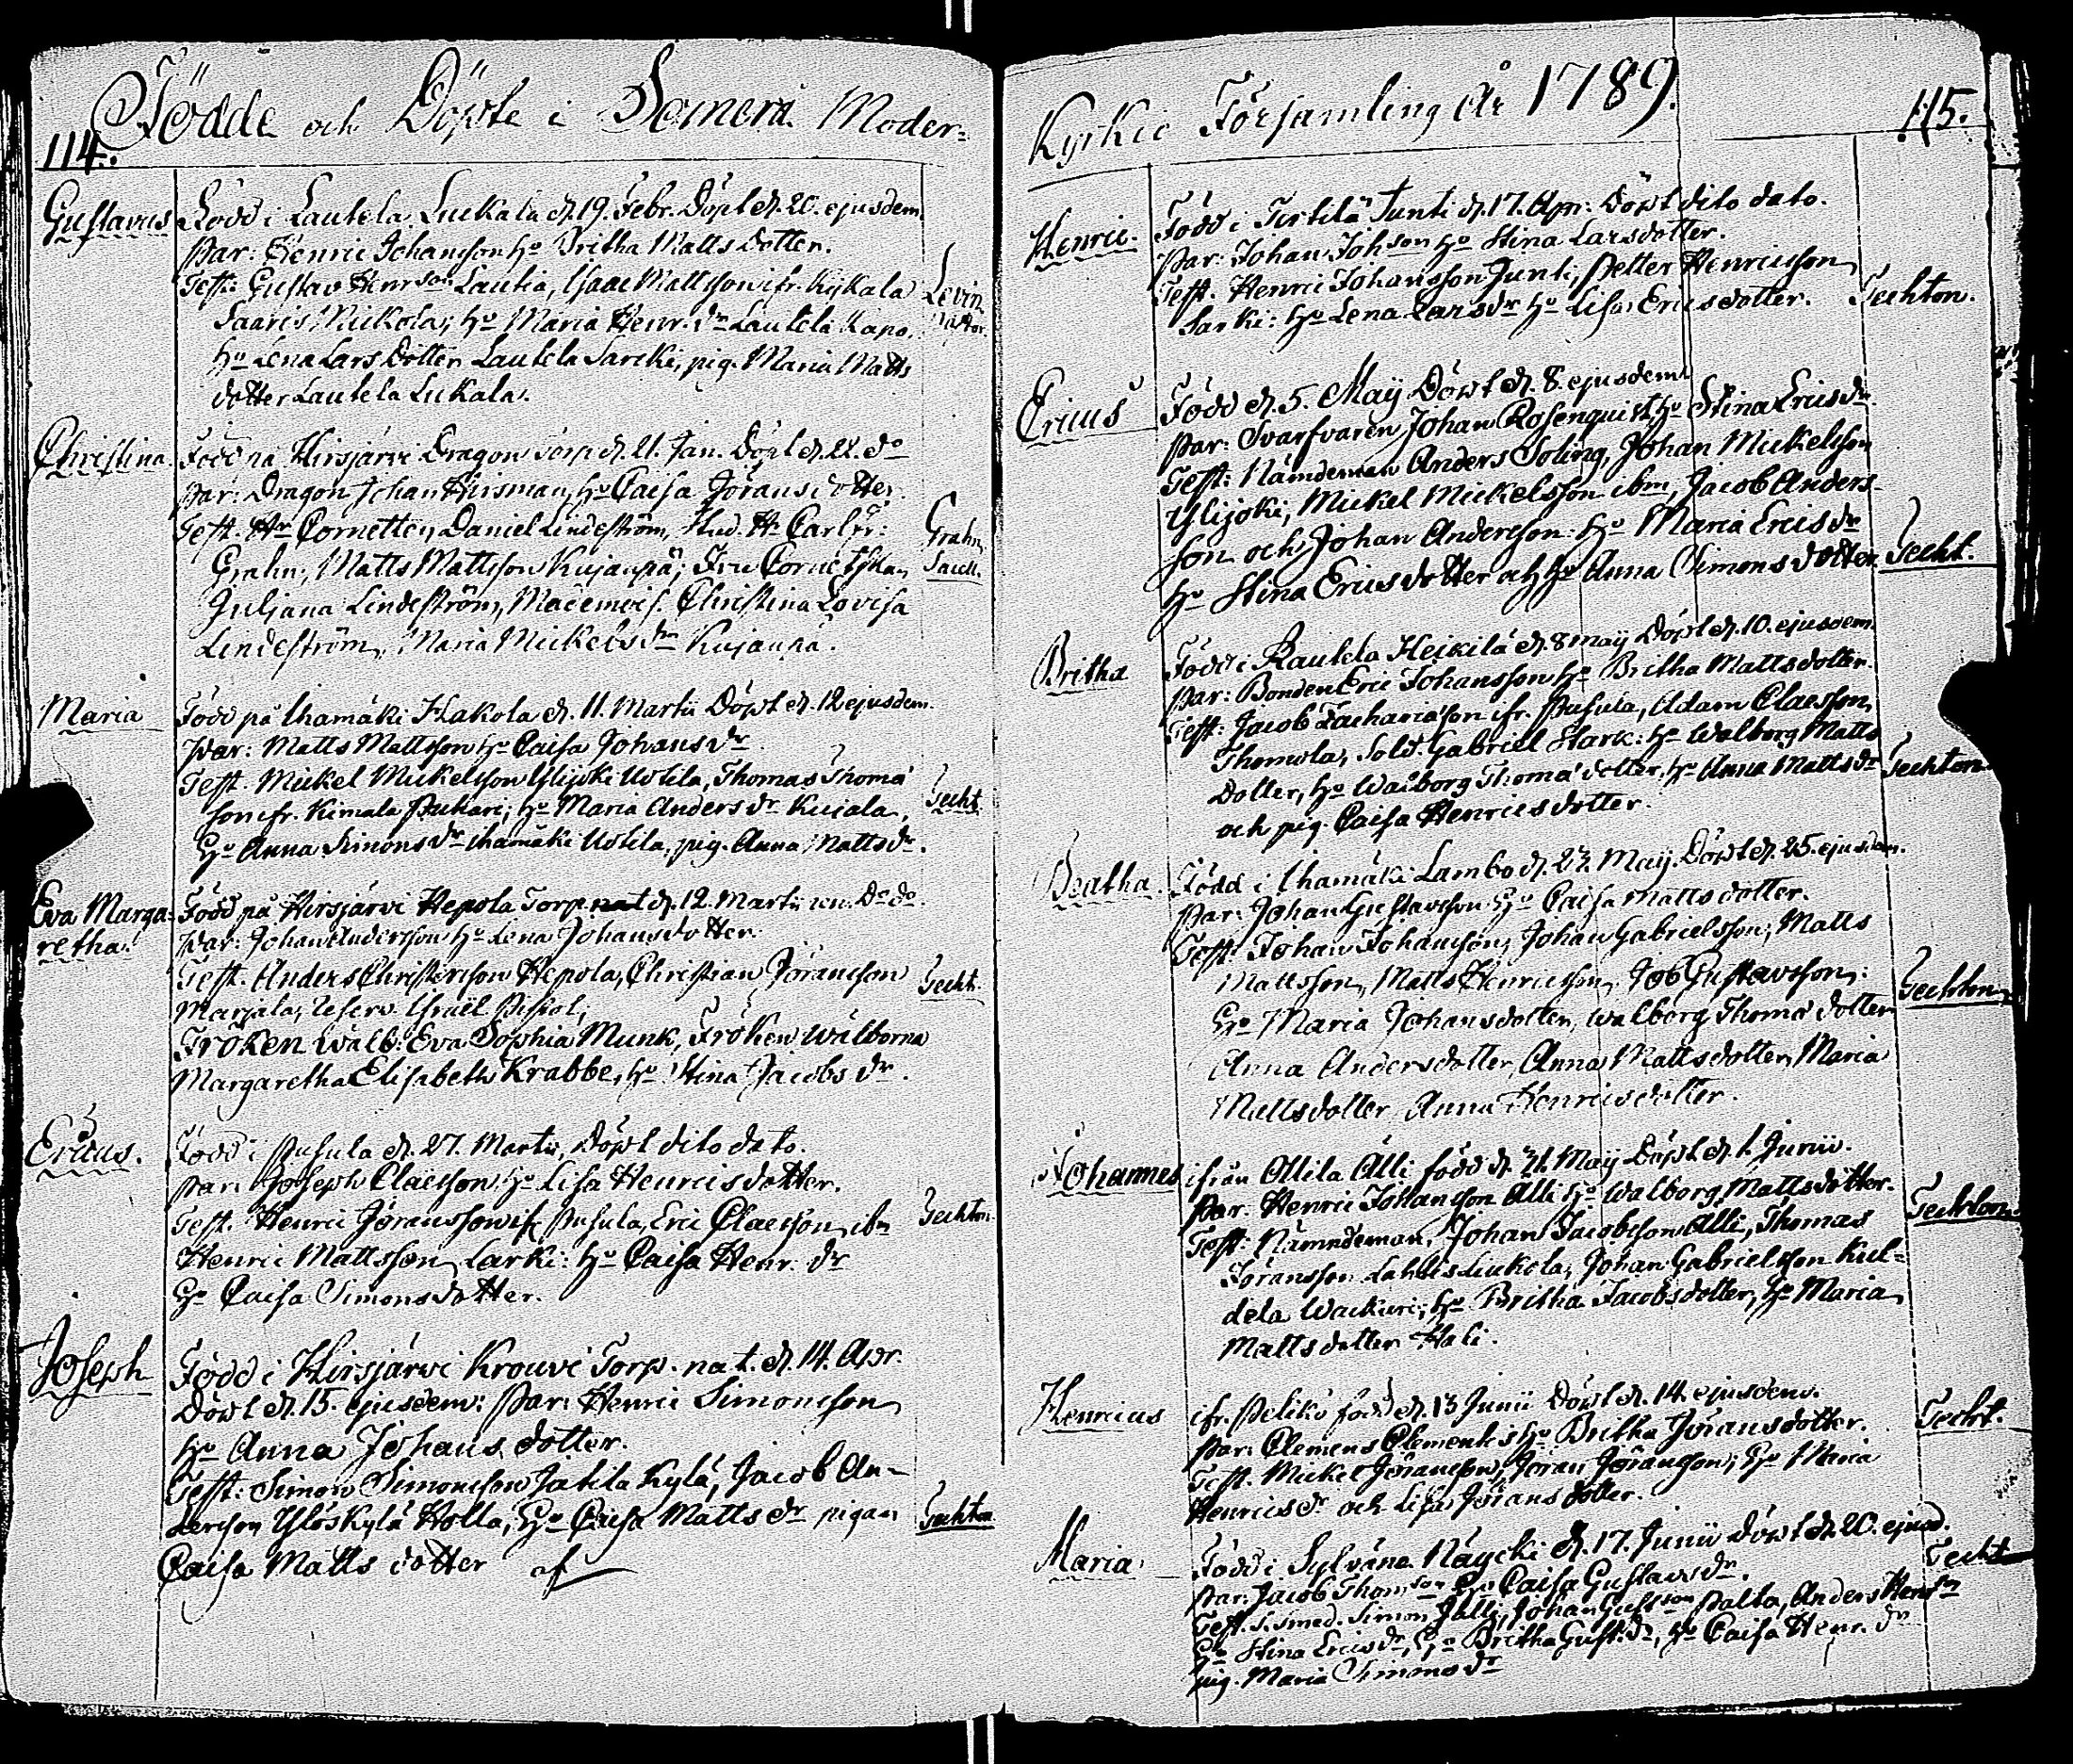 114.
Födde och Döpte i Somero Moder-
Gustavus Född i Lautela Luckala d. 19. Febr. Döpt d. 20. ejusdem.
Par: Henric Johansson Ho Britha Matts Dotter.
Test: Gustav Henrson Lautia, Isaac Mattsson ifr. Kyskala
Saaris Mickola; Ho Maria Henr. dr Lautela Kapo,
Ho Lena Lars Dotter Lautela Sarcki, pig. Maria Matts
dotter Lautela Lukala.
Levin
Pastor.
Christina. Född på Hirsjärvi Dragon torp d. 21. Jan. Döpt d. 22. do
Par: Dragon Johan Hirsman, Ho Caisa Jöransdotter.
Test. Hr Cornetten Daniel Lindeström, Stud. Hr Carl Fr:
Grahn, Matts Mattsson Kujanpä; Fru Cornetskan
Juliana Lindeström, Mademois. Christina Lovisa
Lindeström, Maria Mickels dr Kujanpä.
Grahn
Sacell.
Maria Född på Ihamäki Hakola d. 11. Martii Döpt d. 12 ejusdem.
Par: Matts Mattsson Ho Caisa Johans dr
Test. Mickel Mickelsson Ylijoki Uotila, Thomas Thoma
son ifr. Kimala Pukari; Ho Maria Anders dr Kuiala,
Ho Anna Simons dr Ihamäki Uotila, pig. Anna Matts dr.
Techt.
Eva Marga- Född på Hirsjärvi Hepola Torp nat d. 12. Martii ren. Do do.
retha. Par: Johan Andersson Ho Lena Johansdotter.
Test. Anders Christersson Hepola, Christian Göransson
Marjala, Reserv. Israël Pistol;
Fröken Wälb. Eva Sophia Munk, Fröken Wälborna
Margaretha Elisabeth Krabbe, Ho Stina Jacobs dr.
Techt.
Ericus. Född i Pusula d. 27. Martii, Döpt dito dato.
Par: Joseph Claësson Ho Lisa Henricsdotter.
Test. Henric Göransson ifr Pusula, Eric Claesson ibm
Henric Mattsson Larki: Ho Caisa Henr. dr
Ho Caisa Simonsdotter.
Techton.
Joseph Född i Hirsjärvi Krouvi Torp. nat. d. 14. Apr.
Döpt d. 15. ejusdem: Par: Henric Simonsson
Ho Anna Johans dotter.
Test: Simon Simonsson Jatila Kylä, Jacob An-
dersson Ylöskylä Holla, Ho Caisa Matts dr pigan
Caisa Matts dotter
Techton
Kyrkio Församling År 1789.
115.
Henric. Född i Tirtilä Junti d. 17. Apr: Döpt dito dato.
Par: Johan Johson Ho Stina Larsdotter.
Test. Henric Johansson Junti, Petter Henricsson
Sarki: Ho Lena Larsdr Ho Lisa Ericsdotter.
Techton.
Ericus Född d. 5. Maij Döpt d. 8. ejusdem
Par: Svarfvaren Johan Rosenquist, Ho Stina Erics dr
Test: Nämdeman Anders Soling, Johan Mickelsson
Ylijoki, Mickel Mickelsson ibm, Jacob Anders-
son och Johan Andersson: Ho Maria Erics dr
Ho Stina Ericsdotter och Ho Anna Simons dotter.
Techt.
Britha Född i Rautela Heikilä d. 8 maij Döpt d. 10. ejusdem.
Par: Bonden Eric Johansson Ho Britha Mattsdotter.
Test: Jacob Zachariasson ifr. Pusula, Adam Claësson
Thomola, Sold. Gabriel Stark: Ho Walborg Matts
Dotter, Ho Walborg Thoma dotter, Ho Anna Matts dr
och pig. Caisa Henricsdotter.
Techton
Beatha. Född i Ihamäki Lambo d. 23. Maij. Döpt d. 25. ejusdem.
Par: Johan Gustavsson Ho Caisa Matts dotter.
Test: Johan Johansson, Johan Gabrielsson, Matts
Mattsson, Matts Henricsson, Job Gustavsson:
Ho Maria Johansdotter, Walborg Thoma dotter
Anna Andersdotter, Anna Mattsdotter, Maria
Mattsdotter Anna Henricsdotter.
Techton
Johannes ifrån Ollila Älli född d. 31. Maij Döpt d. 1. Junii.
Par: Henric Johansson Älli Ho Walborg Mattsdotter.
Test: Nämndeman, Johan Jacobsson Älli, Thomas
Göransson Lahtis Liukola, Johan Gabrielsson Kul-
dela Wackuri; Ho Britha Jacobsdotter, Ho Maria
Mattsdotter Hali.
Techton
Henricus ifr. Peliko född d. 13 Junii Döpt d. 14 ejusdem.
Par: Clemens Clementis Ho Britha Jöransdotter.
Test. Mickel Göransson, Jöran Göransson; Ho Maria
Henrics dr och Lisa Jörans dotter.
Techt.
Maria Född i Sylväna Näycki d. 17. Junii Döpt d. 20. ejusd.
Par: Jacob Thomson Ho Caisa Gustavs dr.
Test. S. smed. Simon Jälli, Johan Gustson Palta, Anders Henrson
Ho Stina Erics dr, Ho Britha Gust. dr, Ho Caisa Henr. dr
pig. Maria Simons dr
Techt